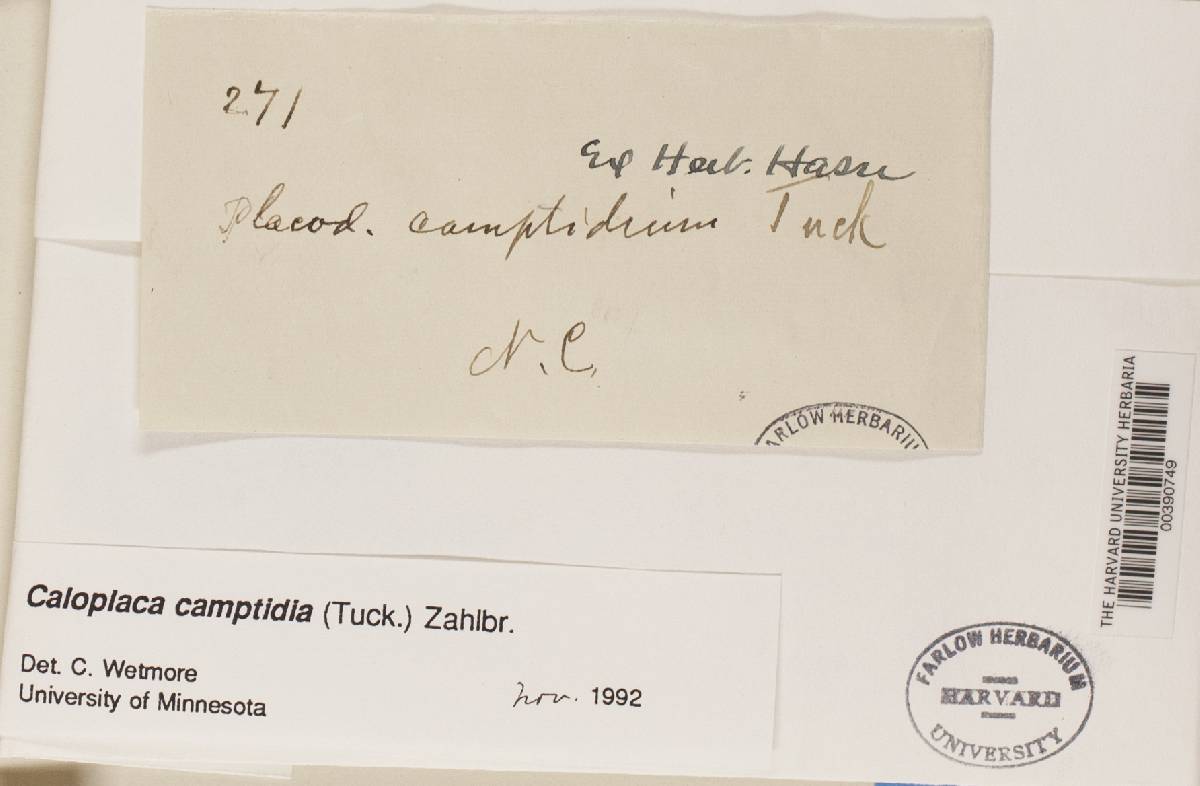 271
Ex Herb. Hasse
Placod. camptidium Tuck
N. C.
FARLOW HERBARIU
THE HARVARD UNIVERSITY HERBARIA
00390749
Caloplaca camptidia (Tuck.) Zahlbr.
Det. C. Wetmore
University of Minnesota
Nov. 1992
FARLOW HERBARIUM
HARVARD
UNIVERSITY